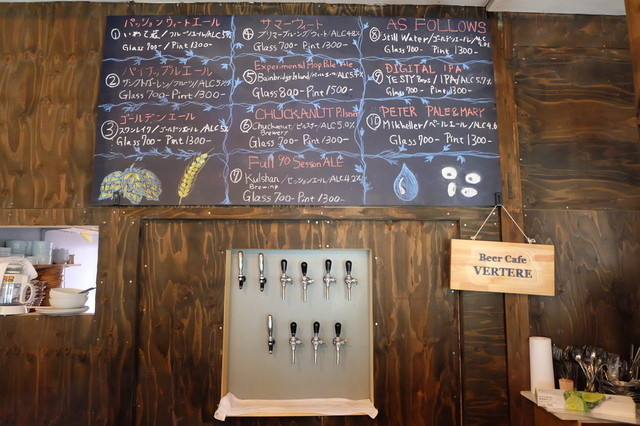 パッションウィートエール
① いわて蔵/フルーツエール/ALC5%
Glass 700- Pint 1300-
② パイナップルエール
サンクトガーレン/フルーツ/ALC5.0%
Glass 700- Pint 1300-
③ ゴールデンエール
スワンレイク/ゴールデンエール/ALC5%
Glass 700- Pint 1300-
サマーウィート
④ プリマ―ブルーイング/ウィート/ALC4.8%
Glass 700- Pint 1300-
Experimental Hop Pale Ale
⑤ Bainbridge Island/ペールエール/ALC5.4%
Glass 800- Pint 1500-
CHUCKANUT Pilsner
⑥ Chuckanut Brewery/ピルスナー/ALC5.0%
Glass 700- Pint 1300-
Full 90 Session ALE
⑦ Kulshan Brewing/セッションエール/ALC4.2%
Glass 700- Pint 1300-
AS FOLLOWS
⑧ Still Water/ゴールデンエール/ALC
Glass 700- Pint 1300-
DIGITAL IPA
⑨ YEASTY Boys/IPA/ALC5.7%
Glass 700- Pint 1300-
PETER PALE & MARY
⑩ Mikkeller/ペールエール/ALC4.6
Glass 700- Pint 1300-
Beer Cafe
VERTERE